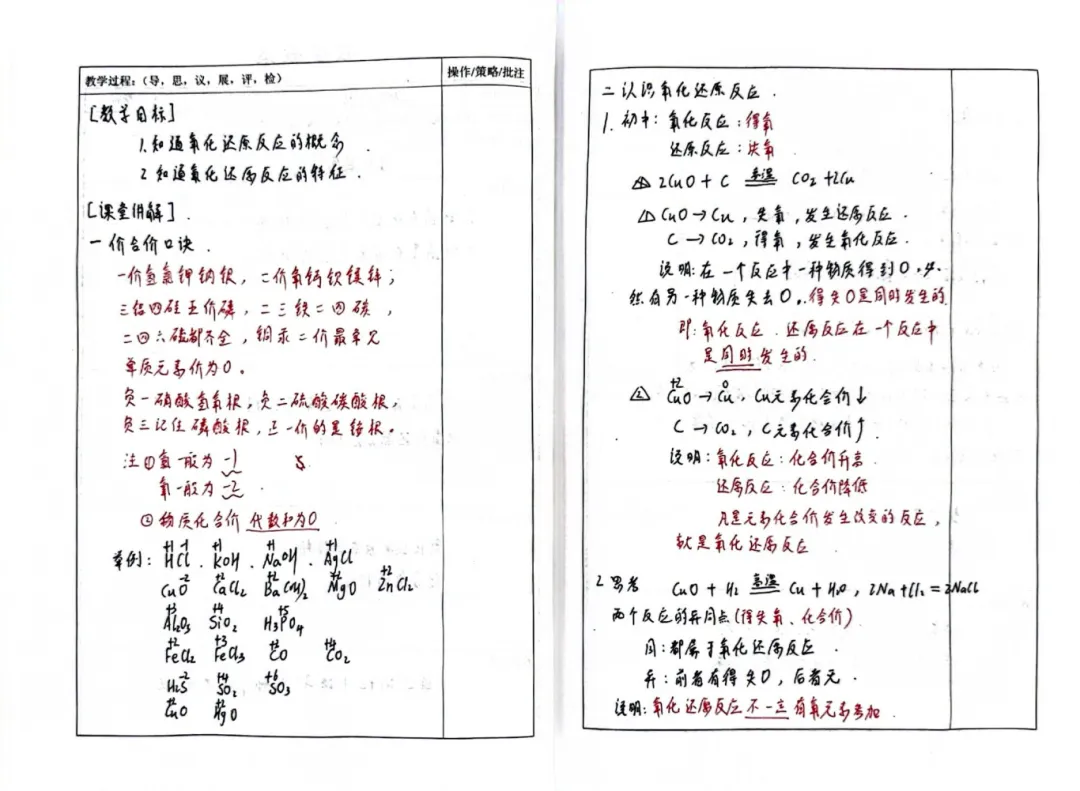 教学过程：（导，思，议，展，评，检）
操作/策略/批注
[教学目标]
1. 知道氧化还原反应的概念.
2 知道氧化还原反应的特征.
[课堂讲解].
一 价合价口诀.
一价氢氯钾钠银，二价氧钙钡镁锌；
三铝四硅五价磷，二三铁二四碳，
二四六硫都齐全，铜汞二价最常见
单质元素价为0。
负一硝酸氢氧根，负二硫酸碳酸根，
负三记住磷酸根，正一价的是铵根。
注①氢一般为 -1
氧一般为 -2.
②物质化合价 代数和为0
举例: HCl. KOH. NaOH. AgCl
CuO CaCl₂ Ba(OH)₂ MgO ZnCl₂
Al₂O₃ SiO₂ H₃PO₄
FeCl₂ FeCl₃ CO CO₂
H₂S SO₂ SO₃
CuO HgO
二 认识氧化还原反应.
1. 初中: 氧化反应: 得氧
还原反应: 失氧.
2CuO + C 高温 CO₂ + 2Cu
① CuO → Cu, 失氧, 发生还原反应.
C → CO₂, 得氧, 发生氧化反应.
说明: 在一个反应中一种物质得到O, 必
然有另一种物质失去O, 得失O是同时发生的
即: 氧化反应. 还原反应在一个反应中
是同时发生的.
② CuO → Cu, Cu元素化合价↓
C → CO₂, C元素化合价↑
说明: 氧化反应: 化合价升高.
还原反应: 化合价降低
凡是元素化合价发生改变的反应,
就是氧化还原反应
2 思考 CuO + H₂ 高温 Cu + H₂O, 2Na + Cl₂ = 2NaCl
两个反应的异同点 (得失氧、化合价)
同: 都属于氧化还原反应.
异: 前者有得失O, 后者无.
说明: 氧化还原反应 不一定 有氧元素参加.